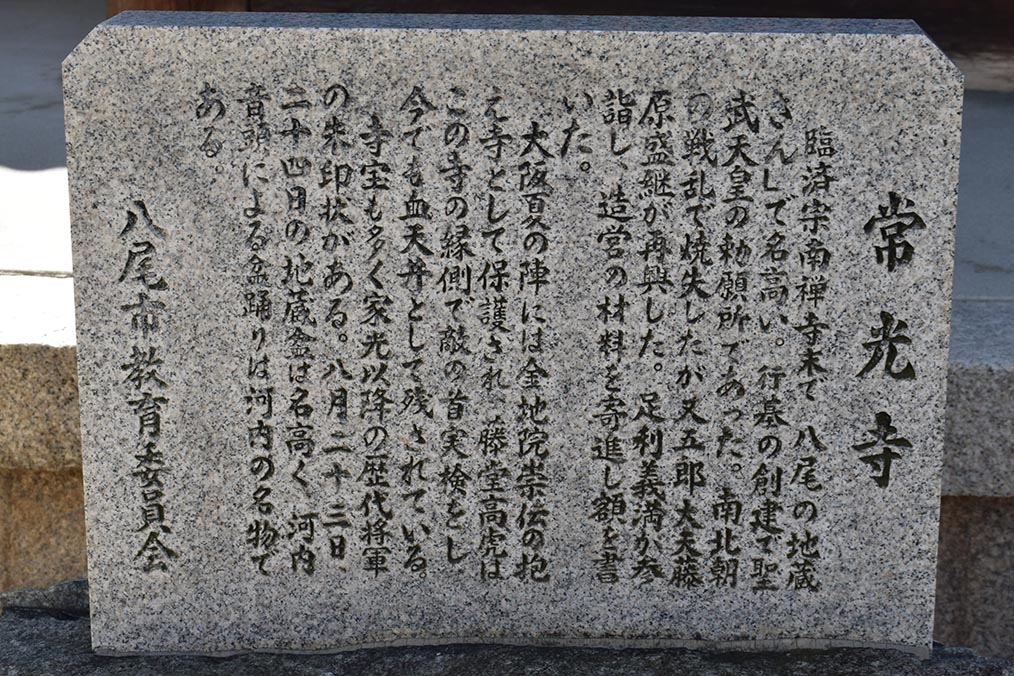 常光寺
臨済宗南禅寺末で 八尾の地蔵
さん」で名高い。行基の創建で聖
武天皇の勅願所であった。南北朝
の戦乱で焼失したが 又五郎大夫藤
原盛継が再興した。足利義満が参
詣し、造営の材料を寄進し額を書
いた。
大阪夏の陣には金地院崇伝の抱
え寺として保護され 藤堂高虎は
この寺の縁側で敵の首実検をし
今でも血天井として残されている。
寺宝も多く家光以降の歴代将軍
の朱印状がある。八月二十三日
二十四日の地蔵盆は名高く 河内
音頭による盆踊りは河内の名物で
ある。
八尾市教育委員会